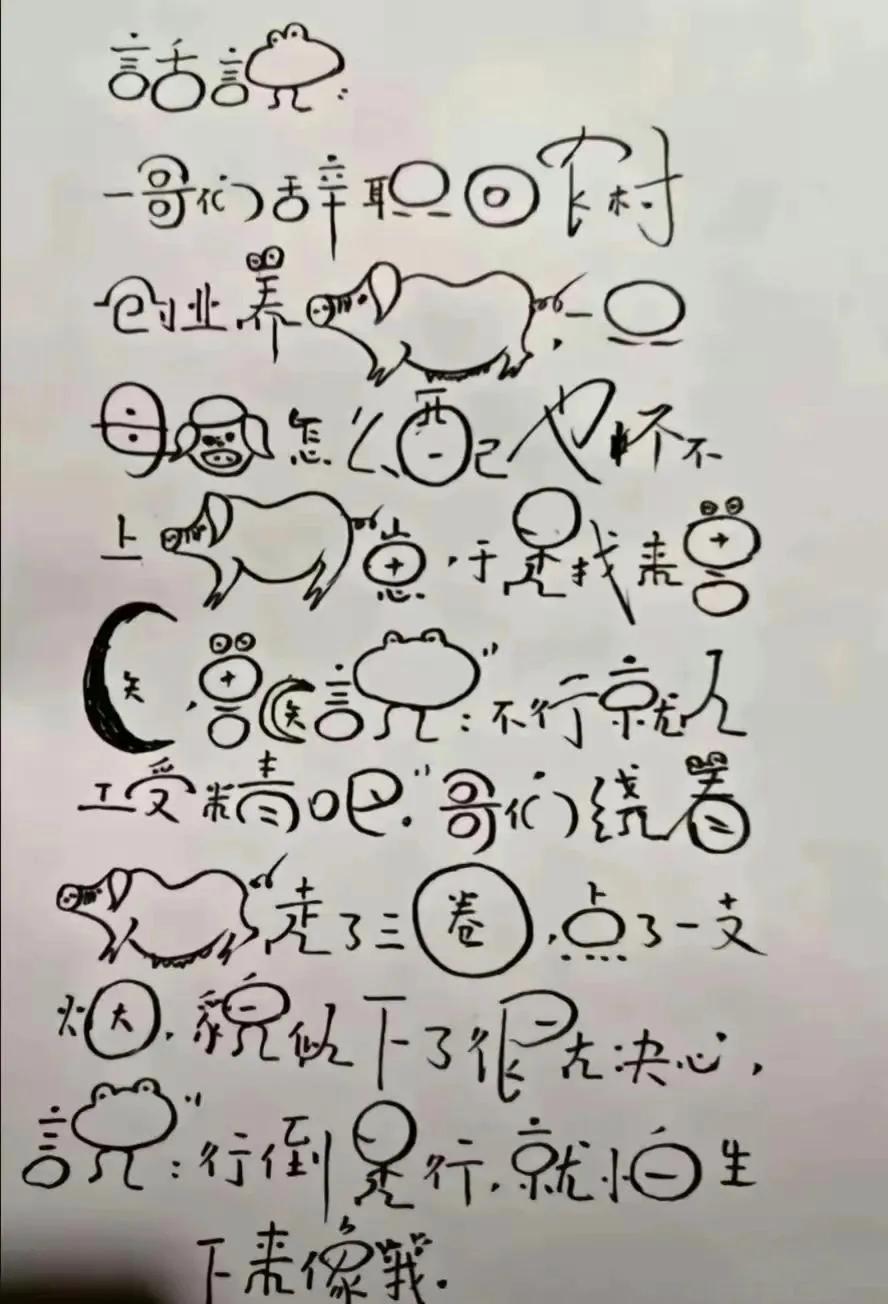 話說:
一哥们辞职回农村
创业养,一只
母怎么配也怀不
上崽,于是找来兽
医,兽医說":不行就人
工受精吧."哥们绕着
走了三圈,点了一支
烟,貌似下了很大决心,
說":行倒是行,就怕生
下来像我.